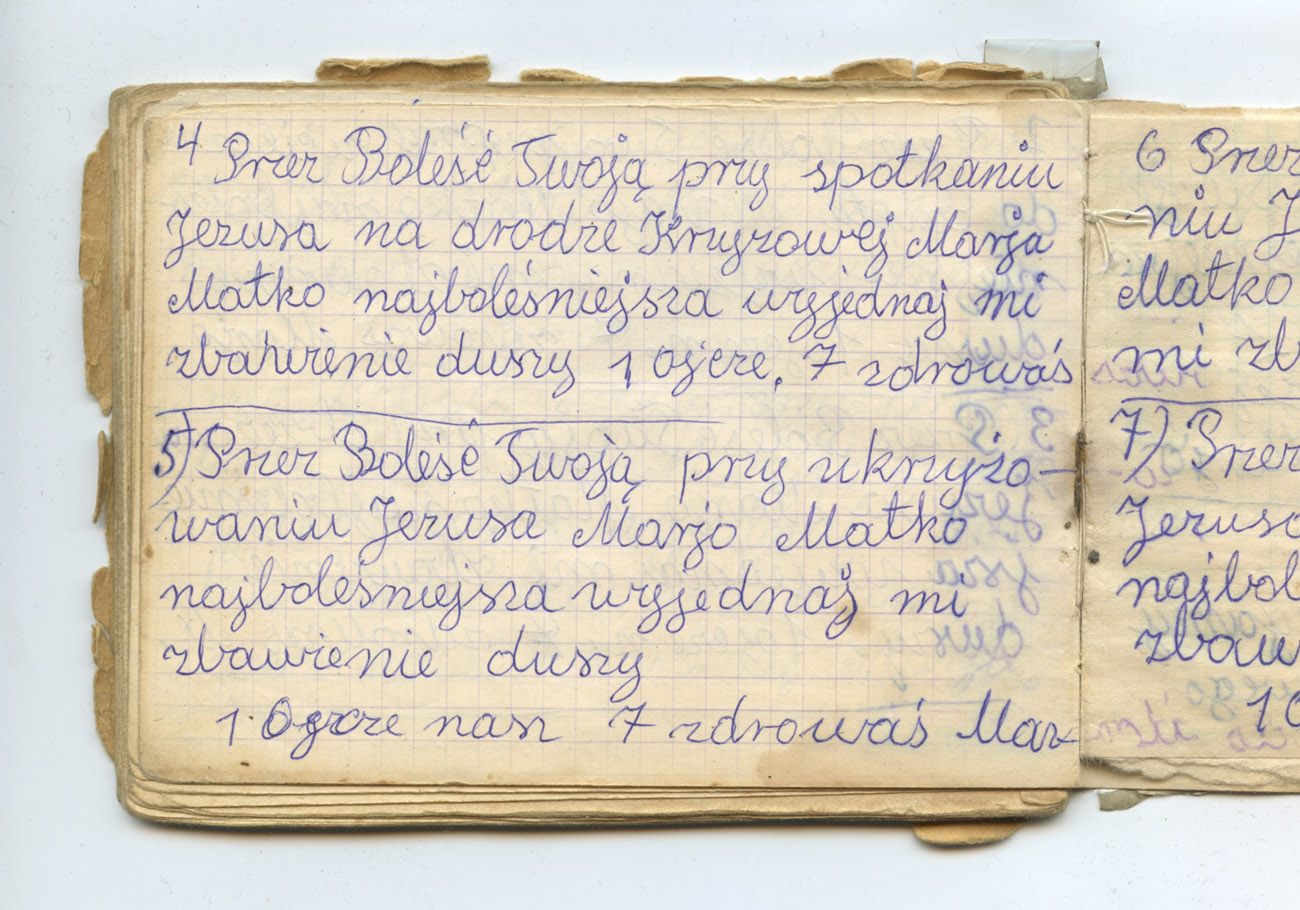 4 Przez Boleść Twoją przy spotkaniu
Jezusa na drodze Krzyżowej Marja
Matko najboleśniejsza wyjednaj mi
zbawienie duszy 1 Ojcze, 7 zdrowaś
5) Przez Boleść Twoją przy ukrzyżo-
waniu Jezusa Marjo Matko
najboleśniejsza wyjednaj mi
zbawienie duszy
1 Ojcze nasz 7 zdrowaś Mar-
6 Przez
niu J
Matko
mi zb
7) Przez
Jezusa
najbol
zbaw
10